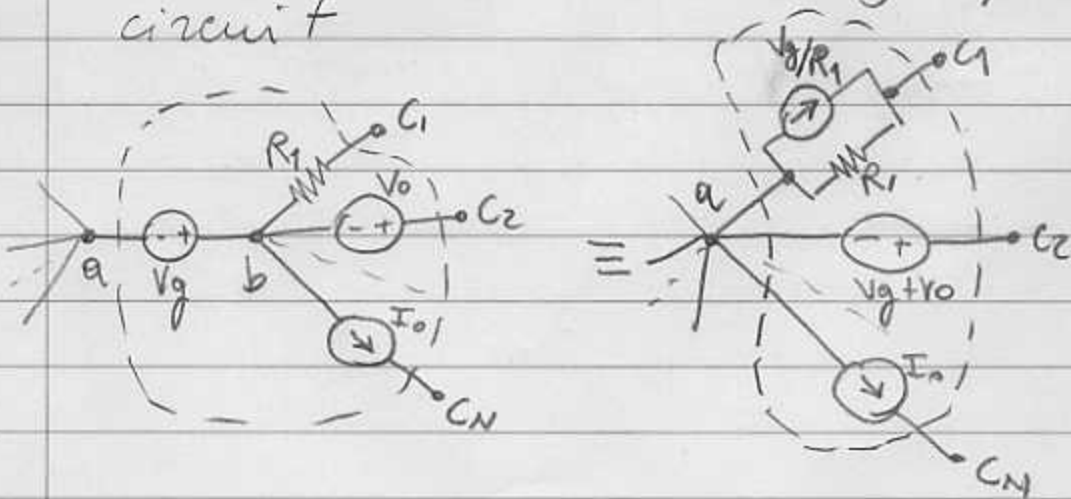 circuit
R1
C1
Vo
C2
a
Vg
b
Io
CN
≡
Vg/R1
C1
R1
a
C2
Vg+Vo
Io
CN